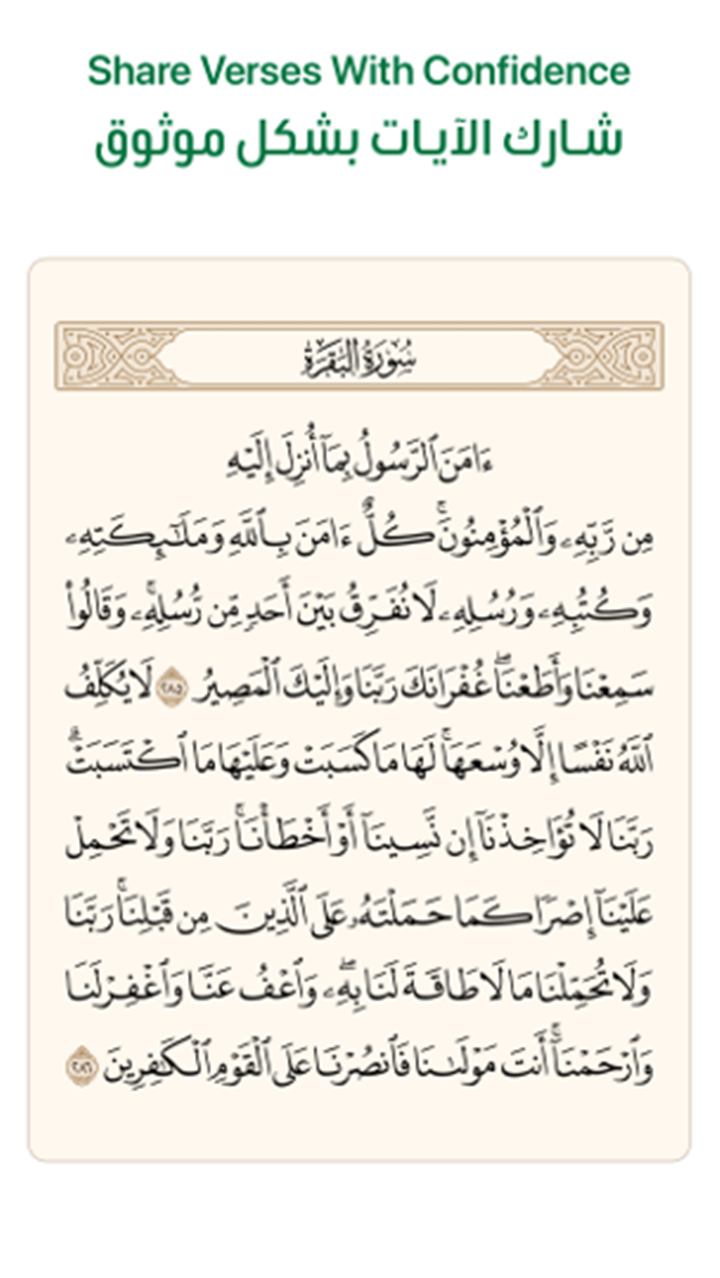 Share Verses With Confidence
شارك الآيات بشكل موثوق
سُورَةُ البَقَرَةِ
ءَامَنَ ٱلرَّسُولُ بِمَآ أُنزِلَ إِلَيْهِ
مِن رَّبِّهِۦ وَٱلْمُؤْمِنُونَ ۚ كُلٌّ ءَامَنَ بِٱللَّهِ وَمَلَـٰٓئِكَتِهِۦ
وَكُتُبِهِۦ وَرُسُلِهِۦ لَا نُفَرِّقُ بَيْنَ أَحَدٍ مِّن رُّسُلِهِۦ ۚ وَقَالُوا۟
سَمِعْنَا وَأَطَعْنَا ۖ غُفْرَانَكَ رَبَّنَا وَإِلَيْكَ ٱلْمَصِيرُ ٢٨٥ لَا يُكَلِّفُ
ٱللَّهُ نَفْسًا إِلَّا وُسْعَهَا ۚ لَهَا مَا كَسَبَتْ وَعَلَيْهَا مَا ٱكْتَسَبَتْ ۗ
رَبَّنَا لَا تُؤَاخِذْنَآ إِن نَّسِينَآ أَوْ أَخْطَأْنَا ۚ رَبَّنَا وَلَا تَحْمِلْ
عَلَيْنَآ إِصْرًا كَمَا حَمَلْتَهُۥ عَلَى ٱلَّذِينَ مِن قَبْلِنَا ۚ رَبَّنَا
وَلَا تُحَمِّلْنَا مَا لَا طَاقَةَ لَنَا بِهِۦ ۖ وَٱعْفُ عَنَّا وَٱغْفِرْ لَنَا
وَٱرْحَمْنَآ ۚ أَنتَ مَوْلَىٰنَا فَٱنصُرْنَا عَلَى ٱلْقَوْمِ ٱلْكَـٰفِرِينَ ٢٨٦